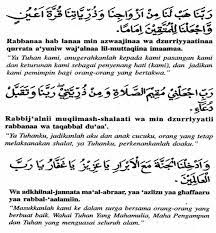 رَبَّنَا هَبْ لَنَا مِنْ أَزْوَاجِنَا وَذُرِّيَّاتِنَا قُرَّةَ أَعْيُنٍ
وَاجْعَلْنَا لِلْمُتَّقِيْنَ إِمَامًا.
Rabbanaa hab lanaa min azwaajinaa wa dzurriyyaatinaa
qurrata a'yuniw waj'alnaa lil-muttaqiina imaamaa.
"Ya Tuhan kami, anugerahkanlah kepada kami pasangan kami
dan keturunan kami sebagai penyenang hati (kami), dan jadikan
kami pemimpin bagi orang-orang yang bertakwa."
رَبِّ اجْعَلْنِيْ مُقِيْمَ الصَّلَاةِ وَمِنْ ذُرِّيَّتِيْ رَبَّنَا وَتَقَبَّلْ
دُعَاءِ.
Rabbij'alnii muqiimash-shalaati wa min dzurriyyatii
rabbanaa wa taqabbal du'aa'.
"Ya Tuhanku, jadikanlah aku dan anak cucuku, orang yang tetap
melaksanakan shalat, ya Tuhanku, perkenankanlah doaku."
وَأَدْخِلْنَا الْجَنَّةَ مَعَ الْأَبْرَارِ يَا عَزِيْزُ يَا غَفَّارُ يَا رَبَّ
الْعَالَمِيْنَ.
Wa adkhilnal-jannata ma'al-abraar, yaa 'aziizu yaa ghaffaaru
yaa rabbal-'aalamiin.
"Masukkanlah kami ke dalam surga bersama orang-orang yang
berbuat baik, Wahai Tuhan Yang Mahamulia, Maha Pengampun
dan Tuhan yang menguasai seluruh alam."